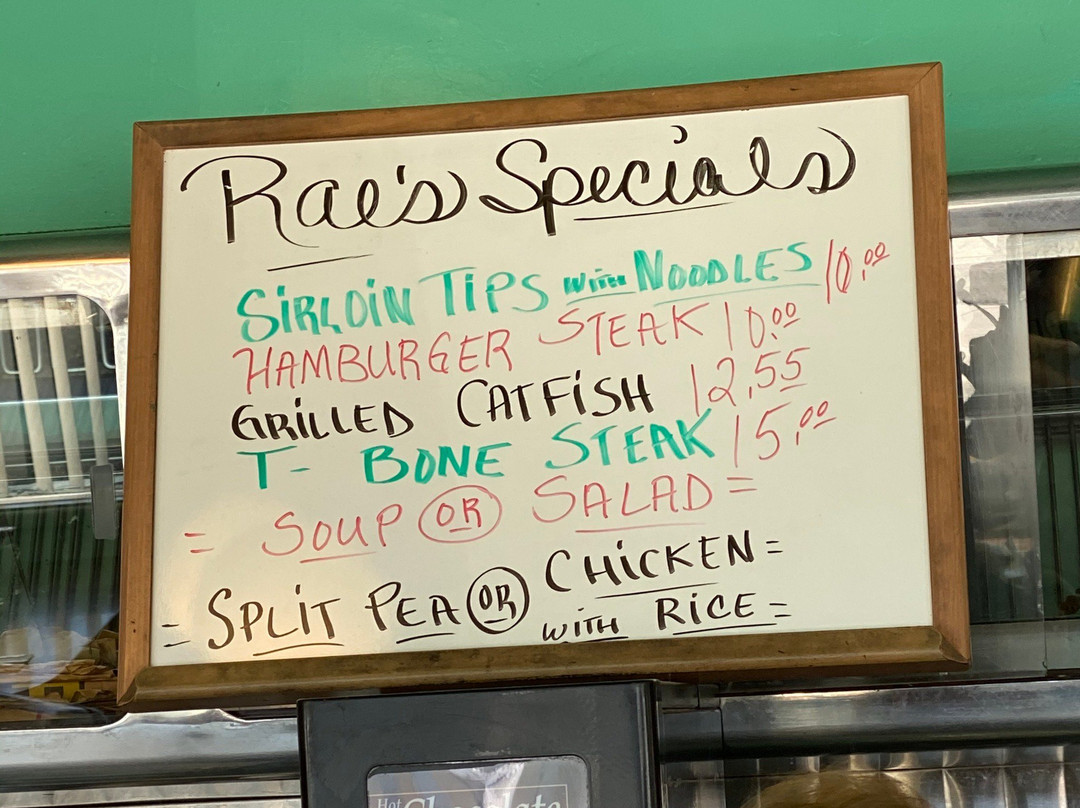 Rae's Specials
SiRLOiN TiPS with NOODLES 10.00
HAMBURGER STEAK 10.00
GRiLLED CATFiSH 12.55
T- BONE STEAK 15.00
= SOUP OR SALAD =
= SPLiT PEA OR CHiCKEN =
WiTH RiCE =
Hot Chocolate